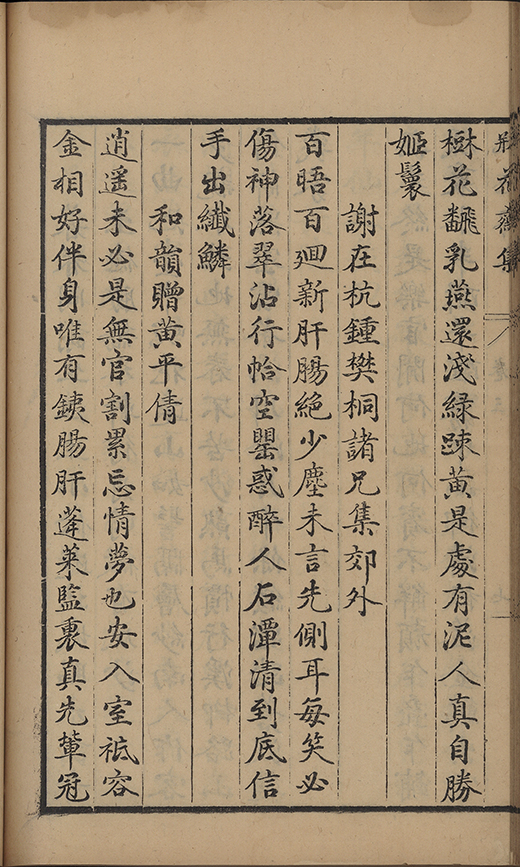 瓶花齋集
樹花飜乳燕還淺綠踈黃是處有泥人真自勝
姬鬟
謝在杭鍾樊桐諸兄集郊外
百晤百廻新肝腸絕少塵未言先側耳每笑必
傷神落翠沾行帢空罍惑醉人石潭清到底信
手出纖鱗
和韻贈黃平倩
逍遥未必是無官割累忘情夢也安入室祗容
金相好伴身唯有銕腸肝蓬萊監裏真先輩冠